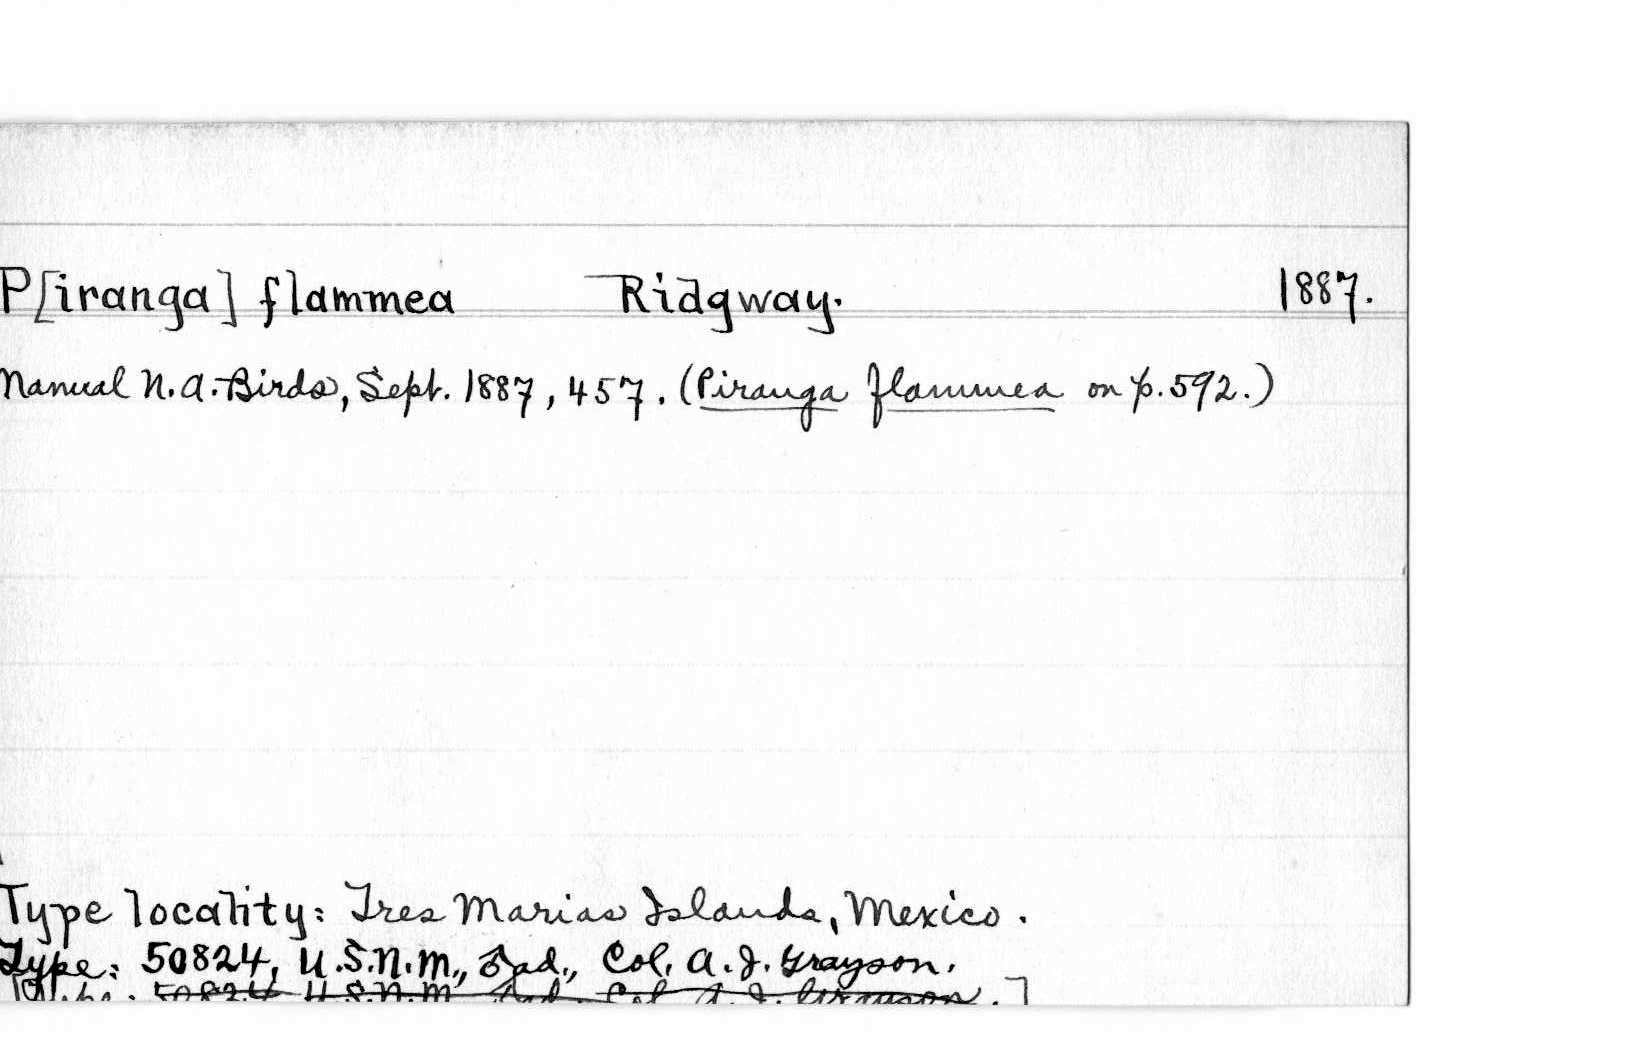 P[iranga] flammea Ridgway. 1887.
Manual N.A. Birds, Sept. 1887, 457. (Piranga flammea on p. 592.)
Type locality: Tres Marias Islands, Mexico.
Type: 50824, U.S.N.M., ♂ ad., Col. A. J. Grayson.
50824 U.S.N.M. ad. Col. A. J. Grayson.]